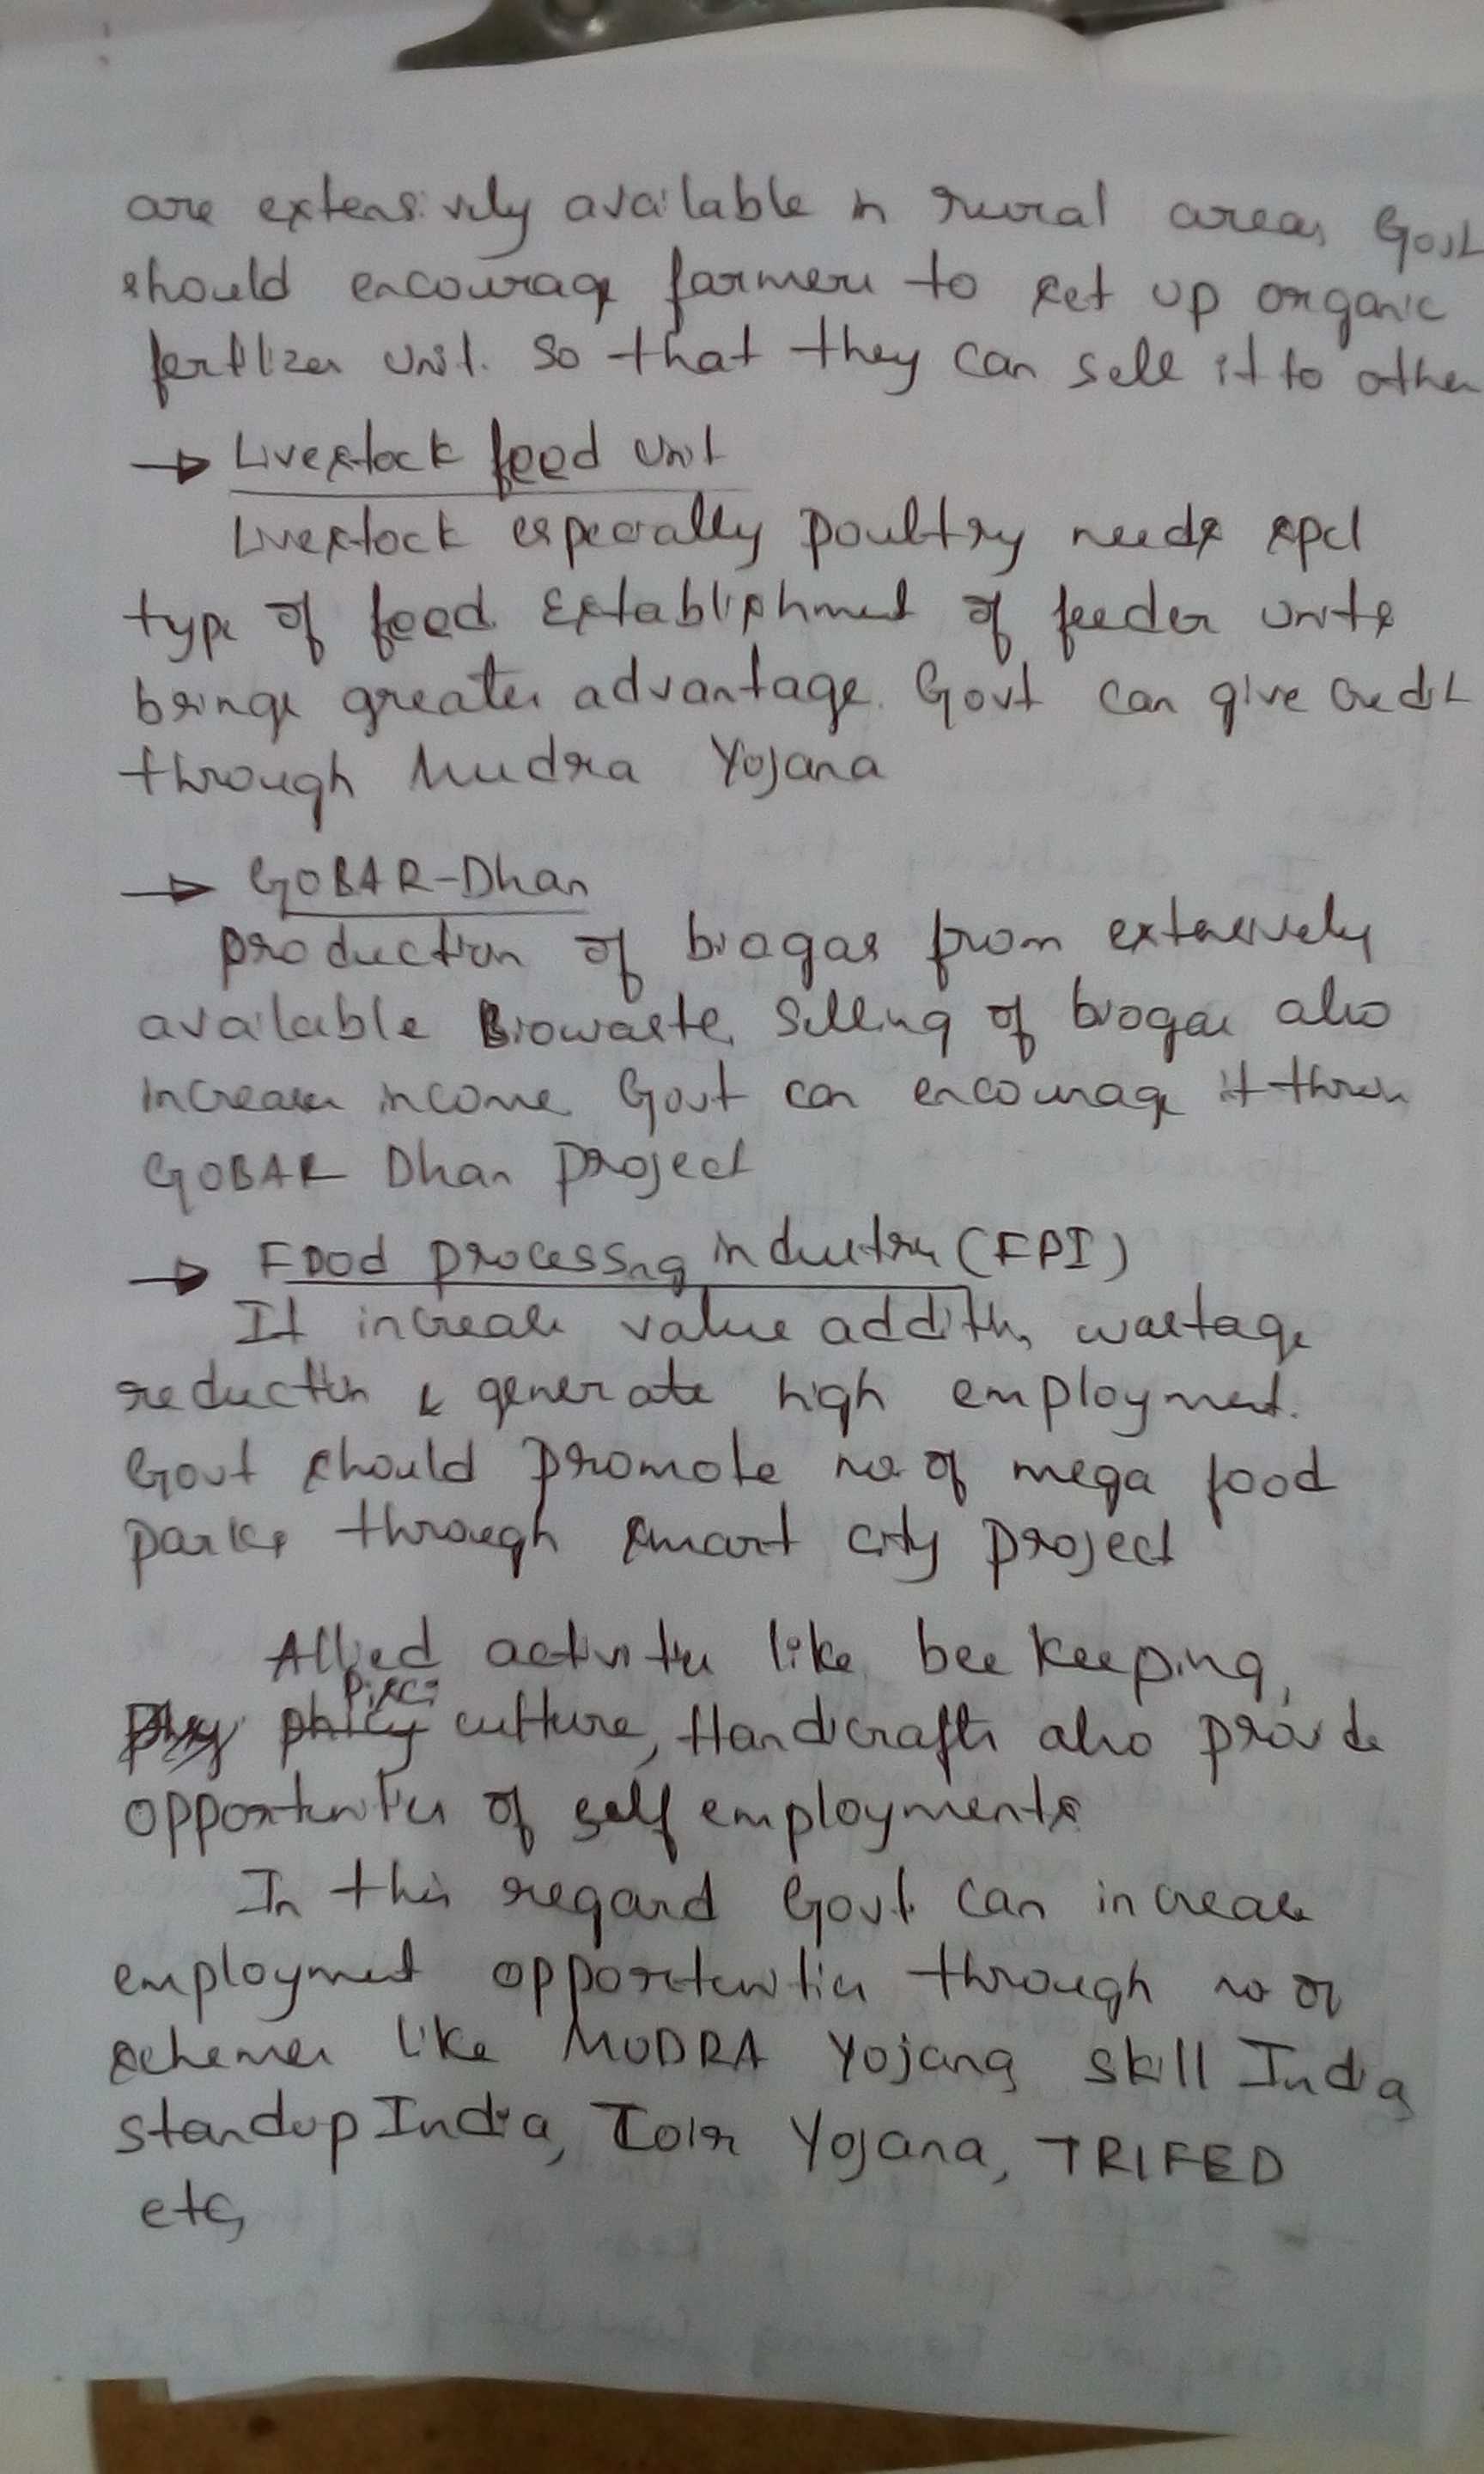 are extensively available in rural areas, Govt
should encourage farmers to set up organic
fertlizer unit. so that they can sell it to other
→ Livestock feed unit
Livestock especially poultry needs spcl
type of feed. Establishment of feeder units
brings greater advantage. Govt can give credit
through Mudra Yojana
→ GOBAR-Dhan
production of biogas from extensively
available Biowaste, Selling of biogas also
increases income. Govt can encourage it throu
GOBAR Dhan project
→ Food processng industry (FPI)
It increase value addition, wastage
reduction & generate high employment.
Govt should promote no. of mega food
parks through smart city project
Allied activities like bee keeping,
pisci culture, Handicrafts also provide
opportunities of self employments.
In this regard Govt can increase
employment opportunities through no of
schemes like MUDRA Yojana, Skill India,
standup India, Coir Yojana, TRIFED
etc,